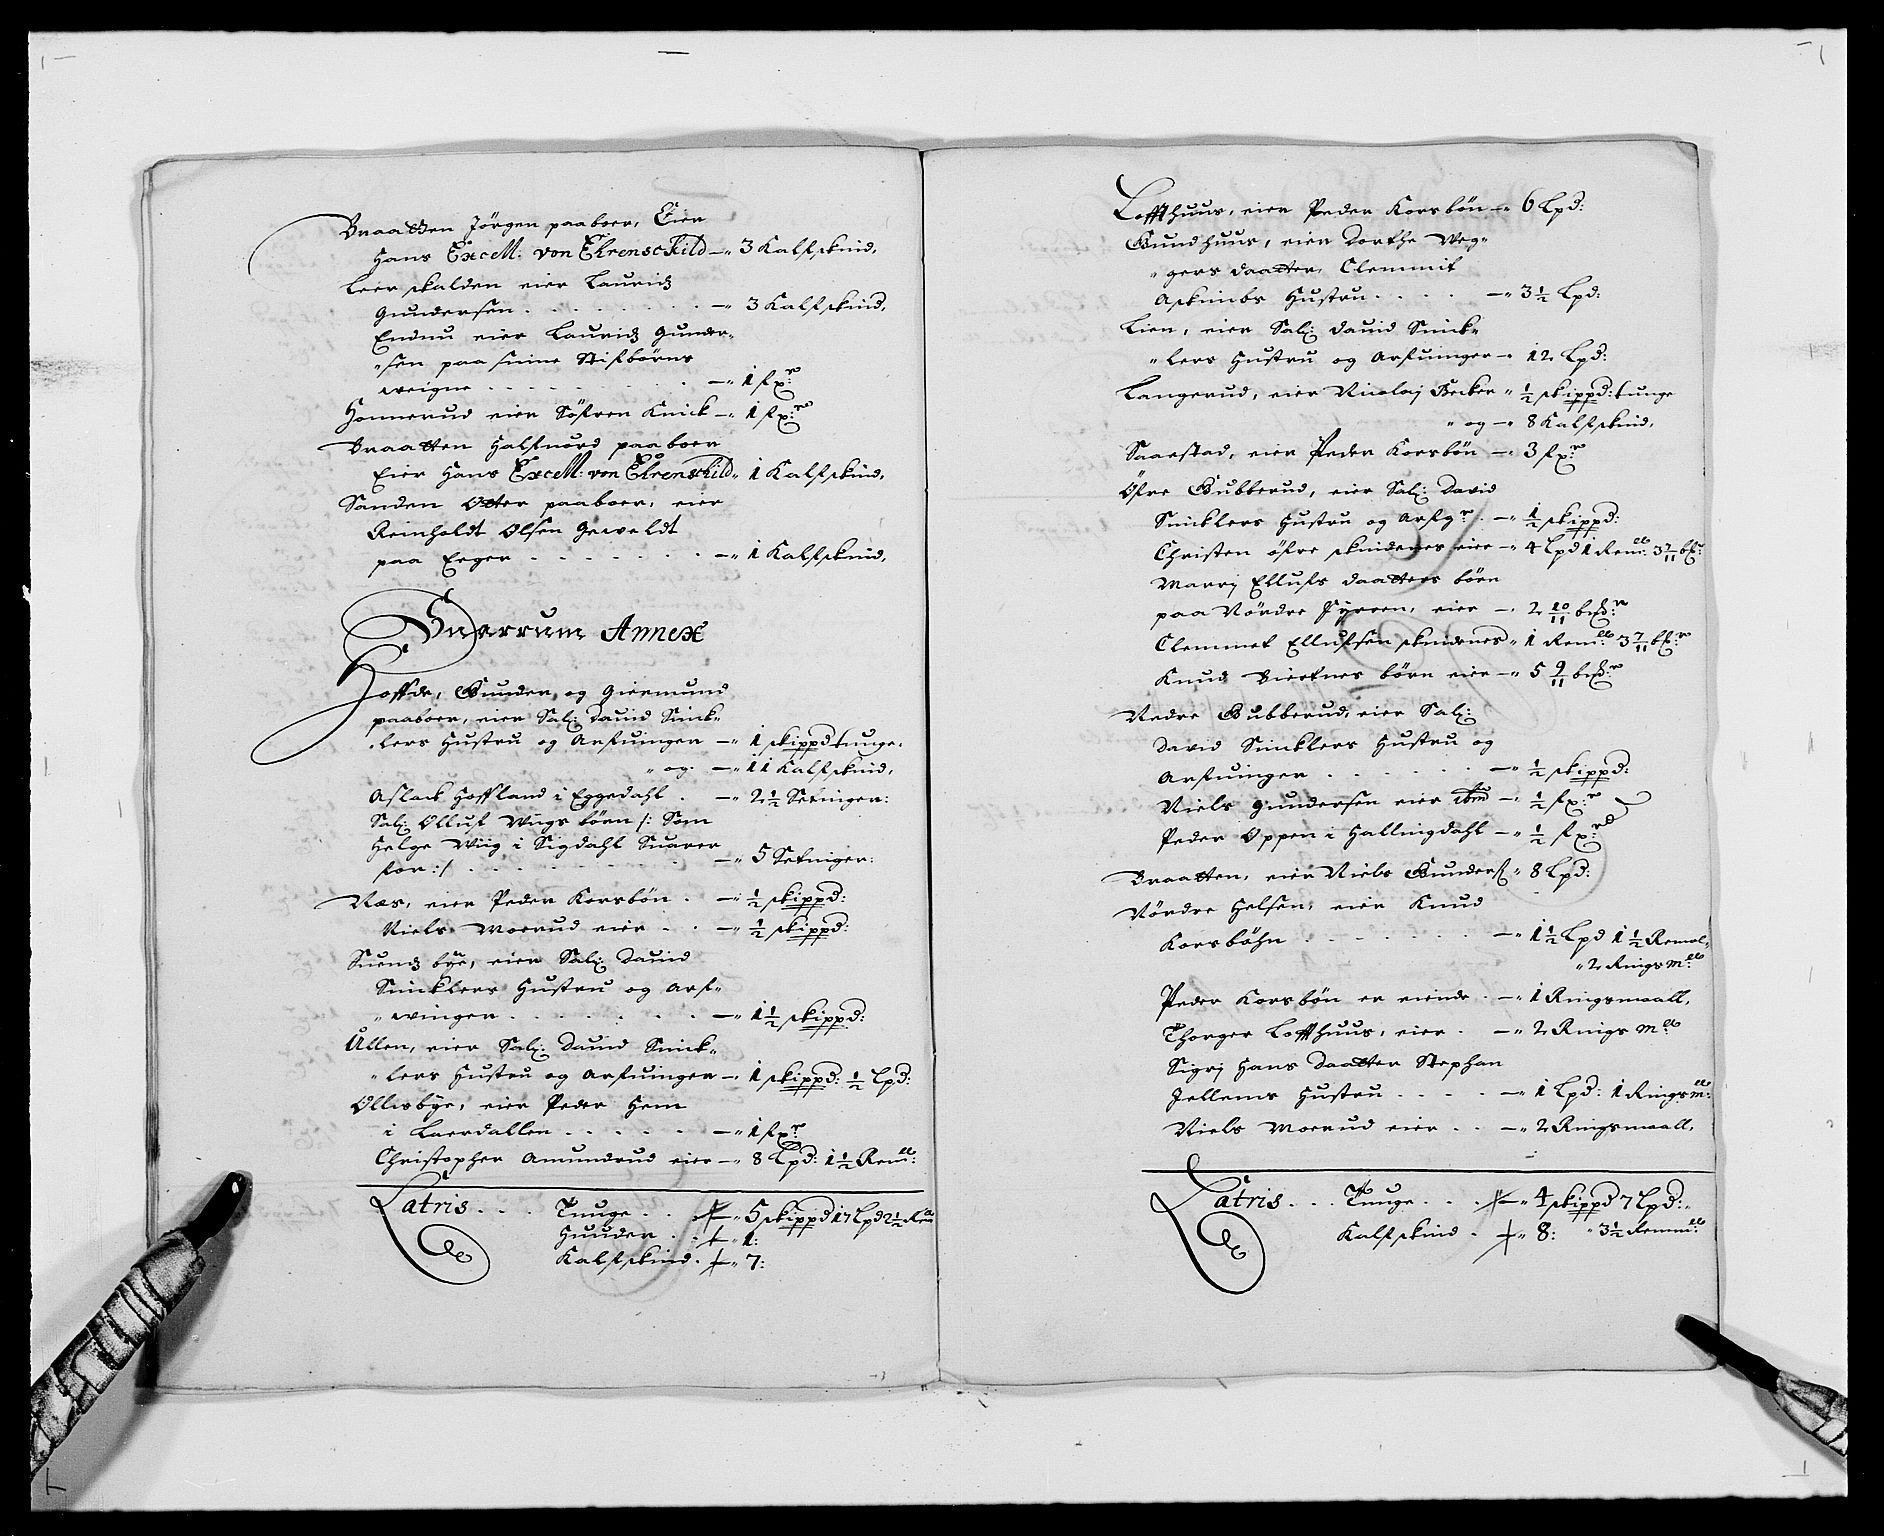 Braatten Jörgen paaboer, Eier
Hans Excell: von Ehrenschild — 3 Kalfskind,
Leerskalden eier Lauridz
Gundersen . . . . . . — 3 Kalfskind,
Endnu eier Lauridz Gunder„
„sen paa sinne Stifbörns
weigne . . . . . . — 1 fx:r
Honnerud eier Söfren Knick — 1 fx:r
Braatten Halfuord paaboer
Eier Hans Excell: von Ehrenschild „ 1 Kalfskind,
Sanden Otter paaboer, eier
Reinholdt Olsen Grweldt
paa Eeger . . . . . . — 1 Kalfskind,
Snarrum Annex
Hoffde, Gunder, og Giermund
paaboer, eier Sal: Dauid Sinck„
„lers Hustru og Arfuinger — 1 skippd tunge,
„ og — 11 Kalfskind,
Aslack Hoffland i Eggedahl . — 2 1/2 Setninger:
Sal: Olluf Wiigs börn /: Som
Helge Wiig i Sigdahl Suarer
for :/ . . . . . . — 5 Setninger:
Næs, eier Peder Korsbön . — 1/2 skippd:
Niels Moerud eier . . — 1/2 skippd:
Suendz bye, eier Sal: Dauid
Sincklers Hustru og Arf„
„winger . . . . . . — 1 1/2 skippd:
Ullen, eier Sal: Dauid Sinck„
„lers Hustru og Arfuinger — 1 skippd: 1/2 Lpd:
Ollisbye, eier Peder Hem
i Laerdallen . . . . . — 1 fx:r
Christopher Amundrud eier — 8 Lpd: 1 1/2 Rem:
Latris . . . Tunge . . — 5 skippd 17 Lpd 2 1/2 Rem
Huuder . . — 1:
Kalfskind . — 7:
Loffthuus, eier Peder Korsbön — 6 Lpd:
Gundhuus, eier Dorthe Weg„
„gers daatter, Clemmit
Askimbs Hustru . . . . — 3 1/2 Lpd:
Lien, eier Sal: Dauid Sinck„
„lers Hustru og Arfuinger — 12 Lpd:
Langerud, eier Nicolaj Becker „ 1/2 skippd: tunge
„ og — 8 Kalfskind,
Saastad, eier Peder Korsbön — 3 fx:r
Öfre Gubberud, eier Sal: David
Sincklers Hustru og Arfgr . — 1/2 skippd:
Christen öfre skindenes eier — 4 Lpd 1 Rem: 3 7/11 bfr:
Marrj Ellufs daatters börn
paa Nördre Fyreen, eier — 2 10/11 bfd:r
Clemmet Ellufsen skindenes „ 1 Rem: 3 7/11 bf:r
Knud Biertnes börn eier — 5 9/11 bfd:r
Nedre Gubberud, eier Sal:
David Sincklers Hustru og
Arfuinger . . . . . . — 1/2 skippd:
Niels Gundersen eier ibm — 1/2 fx:r
Peder Oppen i Hallingdahl — 1/2 fx:r
Braatten, eier Niels Gunders „ 8 Lpd:
Nördre Helsen, eier Knud
Korsböhn . . . . . . — 1 1/2 Lpd 1 1/2 Remol,
„ 2 Rings m:
Peder Korsbön er eiende . — 1 Ringsmaall,
Thorger Loffthuus, eier . — 2 Rings m
Sigrj Hans daatter Stephan
Jellems Hustru . . . . — 1 Lpd: 1 Rings m:
Niels Moerud eier . . — 2 Ringsmaall,
Latris . . . Tunge . . . — 4 skippd 7 Lpd:
Kalfskind . — 8: „ 3 1/2 Remm: